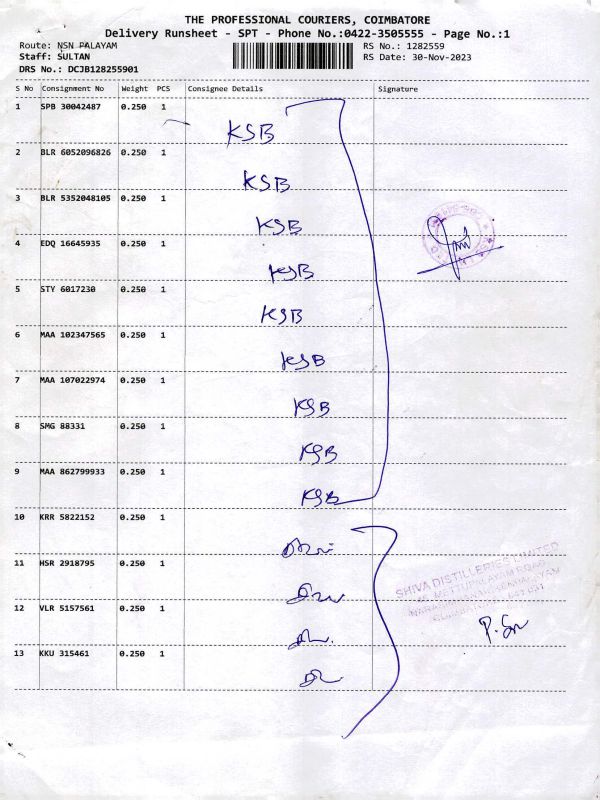 THE PROFESSIONAL COURIERS, COIMBATORE
Delivery Runsheet - SPT - Phone No.:0422-3505555 - Page No.:1
Route: NSN PALAYAM RS No.: 1282559
Staff: SULTAN RS Date: 30-Nov-2023
DRS No.: DCJB128255901
S No Consignment No Weight PCS Consignee Details Signature
1 SPB 30042487 0.250 1
KSB
2 BLR 6052096826 0.250 1
KSB
3 BLR 5352048105 0.250 1
KSB
4 EDQ 16645935 0.250 1
KSB
5 STY 6017230 0.250 1
KSB
6 MAA 102347565 0.250 1
KSB
7 MAA 107022974 0.250 1
KSB
8 SMG 88331 0.250 1
KSB
9 MAA 862799933 0.250 1
KSB
10 KRR 5822152 0.250 1
11 HSR 2918795 0.250 1
SHIVA DISTILLERIES LIMITED
12 VLR 5157561 0.250 1
13 KKU 315461 0.250 1